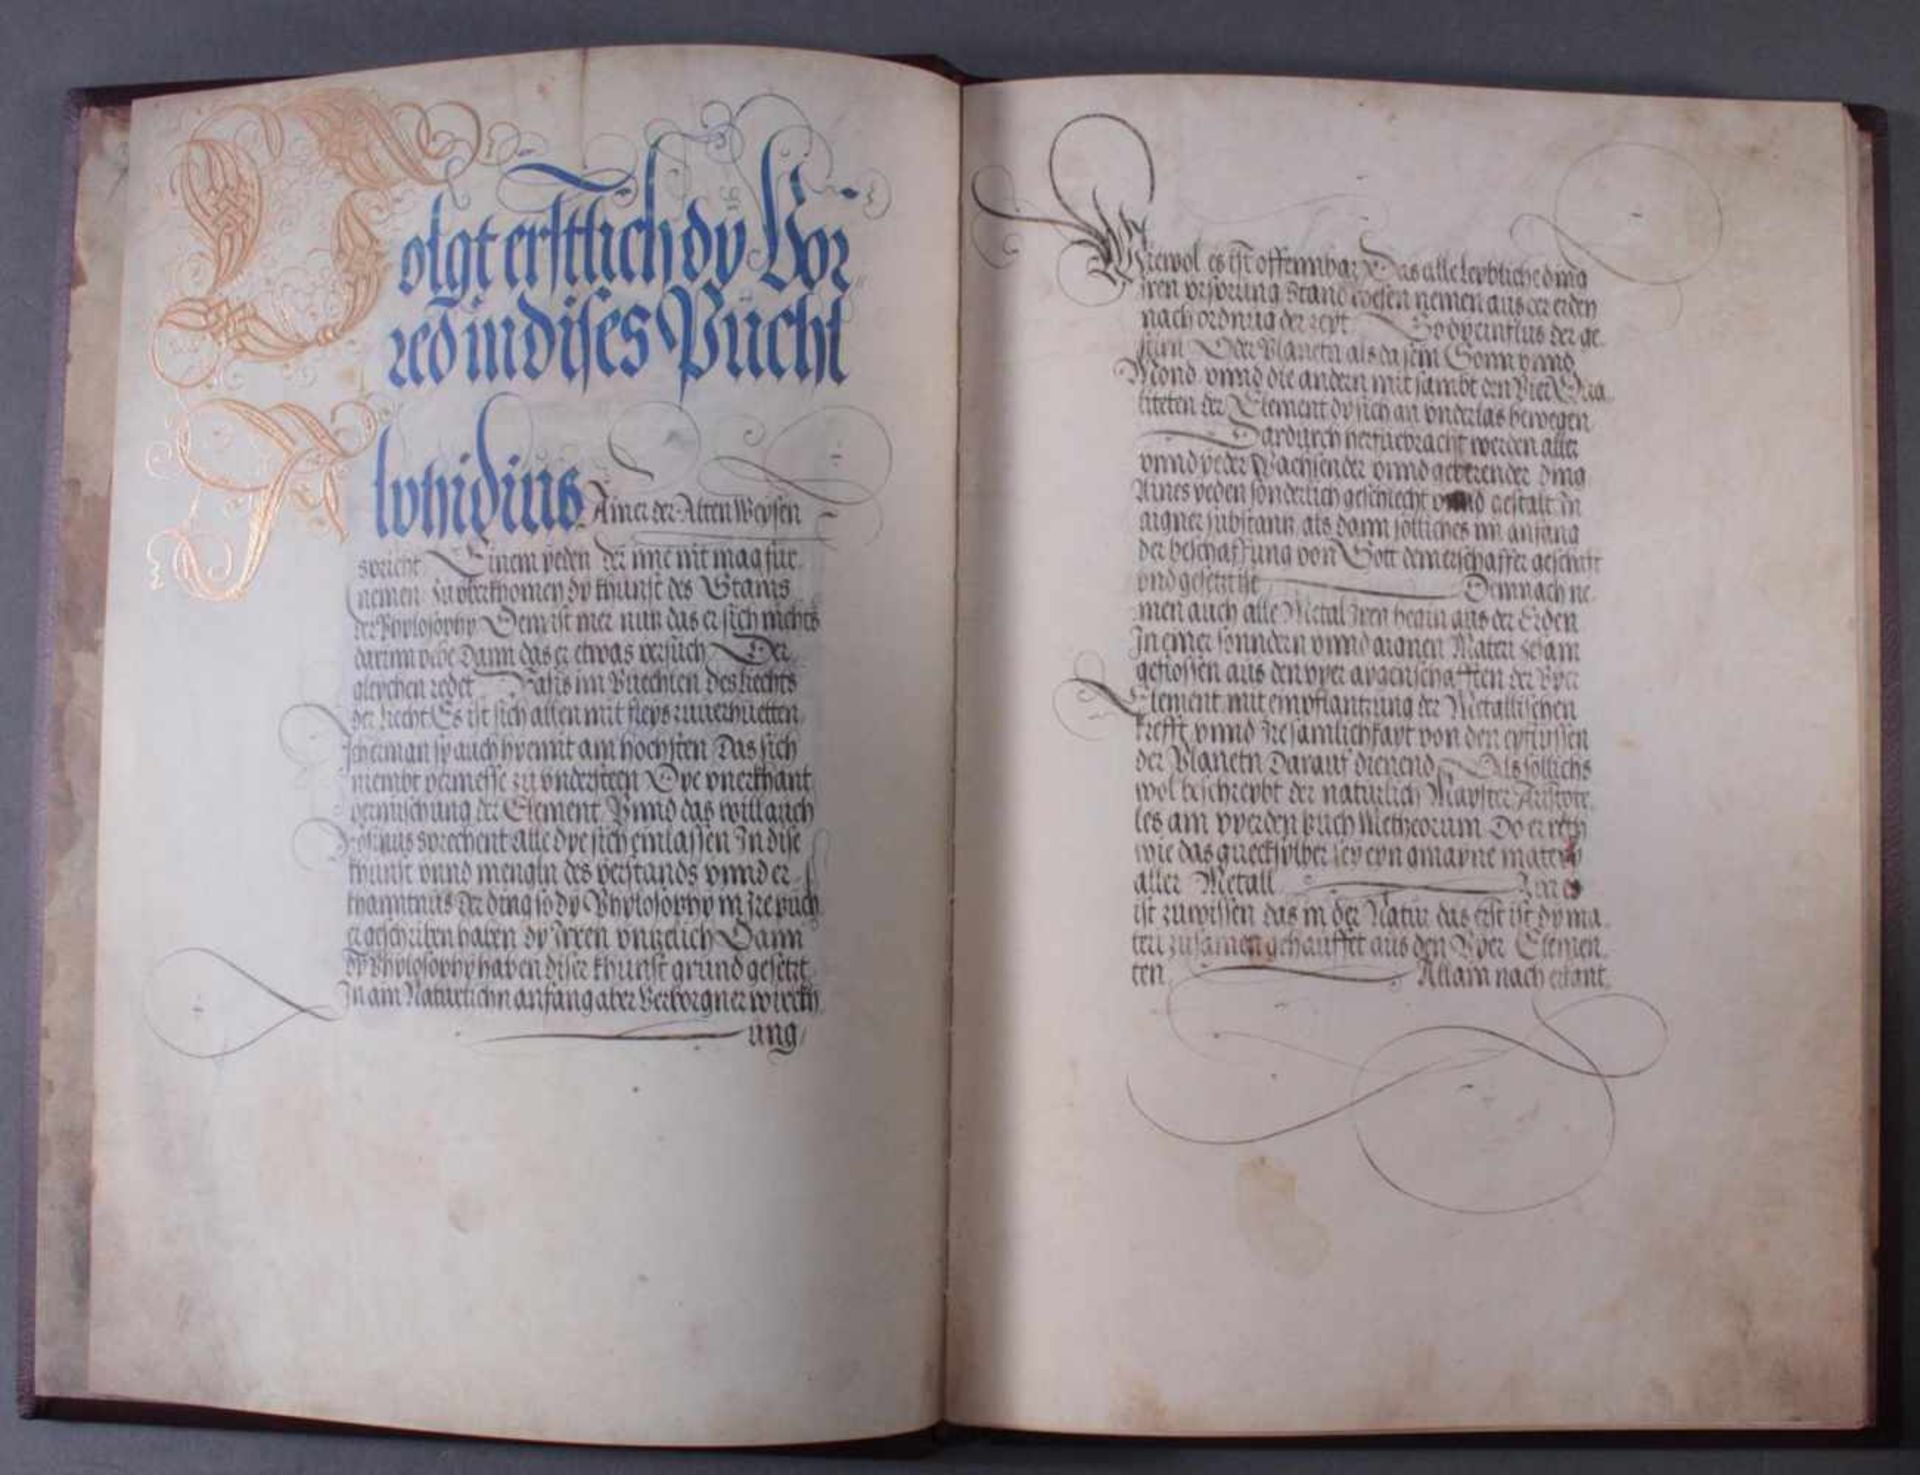 Volgt erstlich dy Vor
red in dises Püchl
Alphidius Ainer der Alten Weysen
spricht Einem yeden der ime nit mag für
nemen zu vberkhomen dy khunst des Stains
der Phylosophy Dem ist mer nun das er sich nichts
darinn vebe Dann das er etwas versuch Der
gleychen redet Rasis im Puechlen des liechts
der liecht Es ist sich allen mit fleys zuuerhuetten
Ich erman sy auch hyemit am hochsten Das sich
niembt vermesse zu vndersteen Dye vnerkhant
vermischung der Element Vnnd das will auch
Rosinus sprechent alle dye sich einlassen In dise
khunst vnnd mengln des verstands vnnd er
khanntnus der ding so dy Phylosophy in Ire puch
er geschriben haben dy Irren vntzelich Dann
Dy Phylosophy haben diser khunst grund gesetzt
In am Naturlichn anfang aber Verborgner wirckh
ung
Wiewol es ist offennbar Das alle leybliche ding
Iren vrsprung Stand wesen nemen aus der erden
nach ordnug der zeyt So dy einflus der ge
stirn Oder Planetn als da sein Sonn vnnd
Mond vnnd die andern mit sambt den Vier Qua
liteten der Element dy sich an vnderlas bewegen
Dardurch herfuebracht werden aller
vnnd yeder Wachsender vnnd geberender ding
Aines yeden sonderlich geschlecht vnnd gestalt in
aigner substanntz als dann sölliches im anfang
der beschaffung von Gott dem erschaffer geschafft
vnd gesetzt ist Demnach ne
men auch alle Metal Iren begin aus der Erden
In einer sonndern vnnd aignen Materi zesam
geflossen aus den vyer aygenschafften der Vyer
Element mit empflantzung der Metallischen
krefft vnnd Zesamlichkayt von den eyflussen
der Planetn Darauf dienend Als söllichs
wol beschreybt der naturlich Mayster Aristote
les am vyerden buch Metheorum Do er redt
wie das quecksylber sey eyn gmayne matery
aller Metall Zwar es
ist zuwissen das in der Natur das erst ist dy ma
teri zusamen gehauffet aus den Vyer Elemen
ten Allain nach erkant